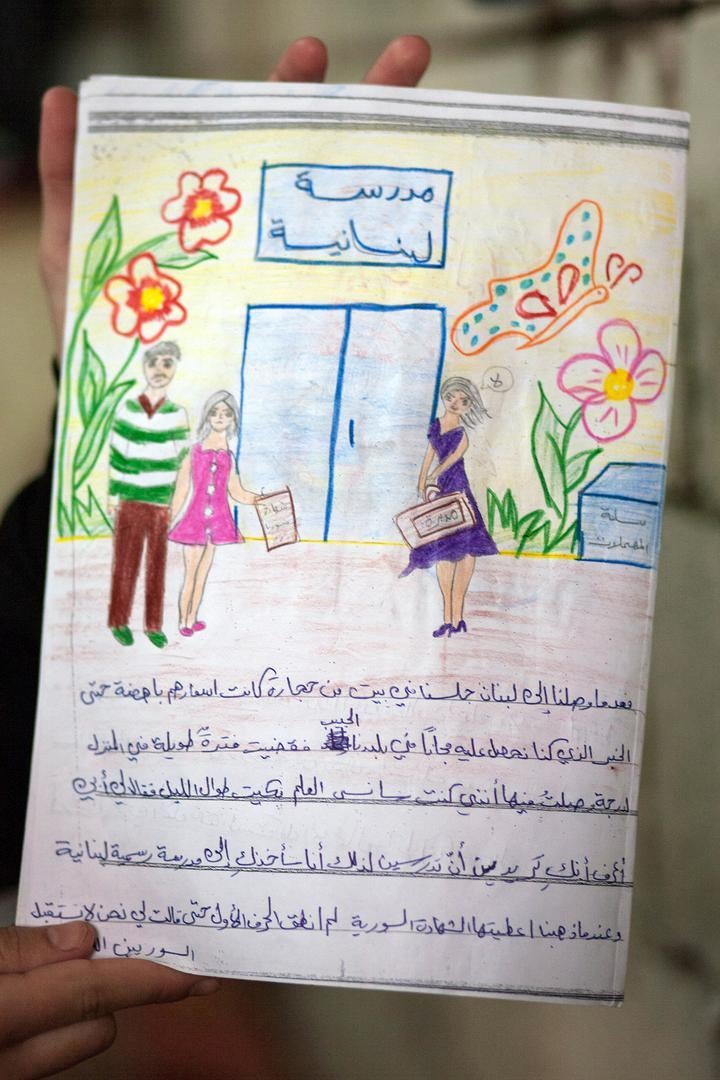 مدرسة
لبنانية
لا
شهادة
سوريا
مديرة
سلة
المهملات
بعدما وصلنا إلى لبنان جلسنا في بيت من حجارة كانت اسعارهم باهضة حتى
الحبيب
الخبز الذي كنا نحصل عليه مجاناً في بلدنا قضيت فترةً طويلة في المنزل
لدرجة وصلتُ فيها أنني كنت سانسى العلم بكيت طوال الليل فقال لي أبي
أعرف أنكِ تريدين أنّ تدرسين لذلك أنا سأخذكِ إلى مدرسة رسمية لبنانية
وعندما ذهبنا اعطيتها الشهادة السورية لم أنطق الحرف الأول حتى قالت لي نحن لانستقبل
السوريين